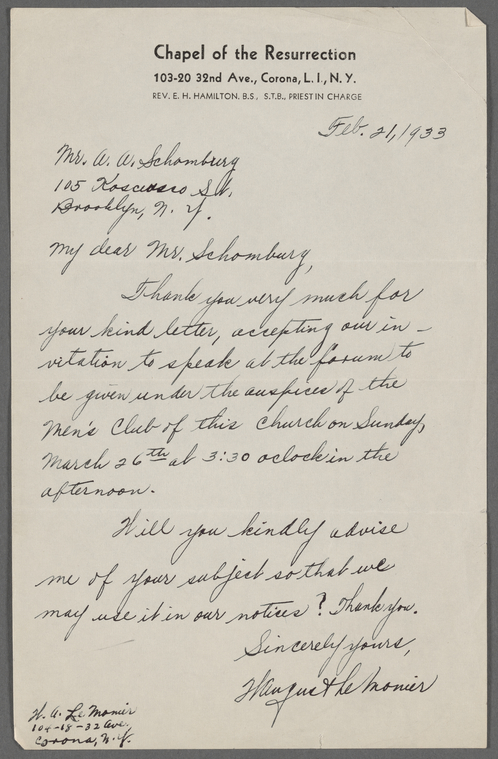 Chapel of the Resurrection
103-20 32nd Ave., Corona, L. I., N. Y.
REV. E. H. HAMILTON. B.S., S.T.B., PRIEST IN CHARGE
Feb. 21, 1933
Mr. A. A. Schomburg
105 Kosciusco St,
Brooklyn, N. Y.
My dear Mr. Schomburg,
Thank you very much for
your kind letter, accepting our in-
vitation to speak at the forum to
be given under the auspices of the
Men's Club of this church on Sunday,
March 26th at 3:30 oclock in the
afternoon.
Will you kindly advise
me of your subject so that we
may use it in our notices? Thank you.
Sincerely yours,
H August Le Monier
H. A. Le Monier
104-68-32 Ave.
Corona, N.Y.